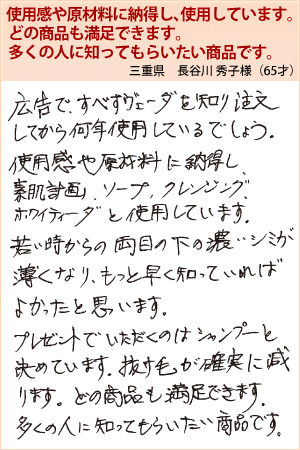 使用感や原材料に納得し、使用しています。
どの商品も満足できます。
多くの人に知ってもらいたい商品です。
三重県　長谷川 秀子様（65才）
広告で、すべすヴェーダを知り注文
してから何年使用しているでしょう。
使用感や原材料に納得し、
素肌計画、ソープ、クレンジング、
ホワイティーダと使用しています。
若い時からの両目の下の濃いシミが
薄くなり、もっと早く知っていれば
よかったと思います。
プレゼントでいただくのはシャンプーと
決めています。抜け毛が確実に減
ります。どの商品も満足できます。
多くの人に知ってもらいたい商品です。